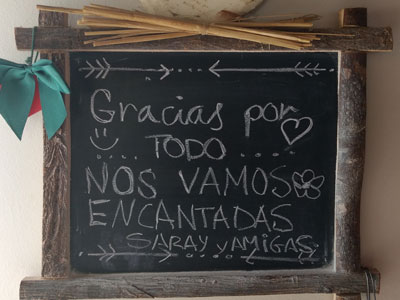 Gracias por
TODO
NOS VAMOS
ENCANTADAS
SARAY y AMIGAS